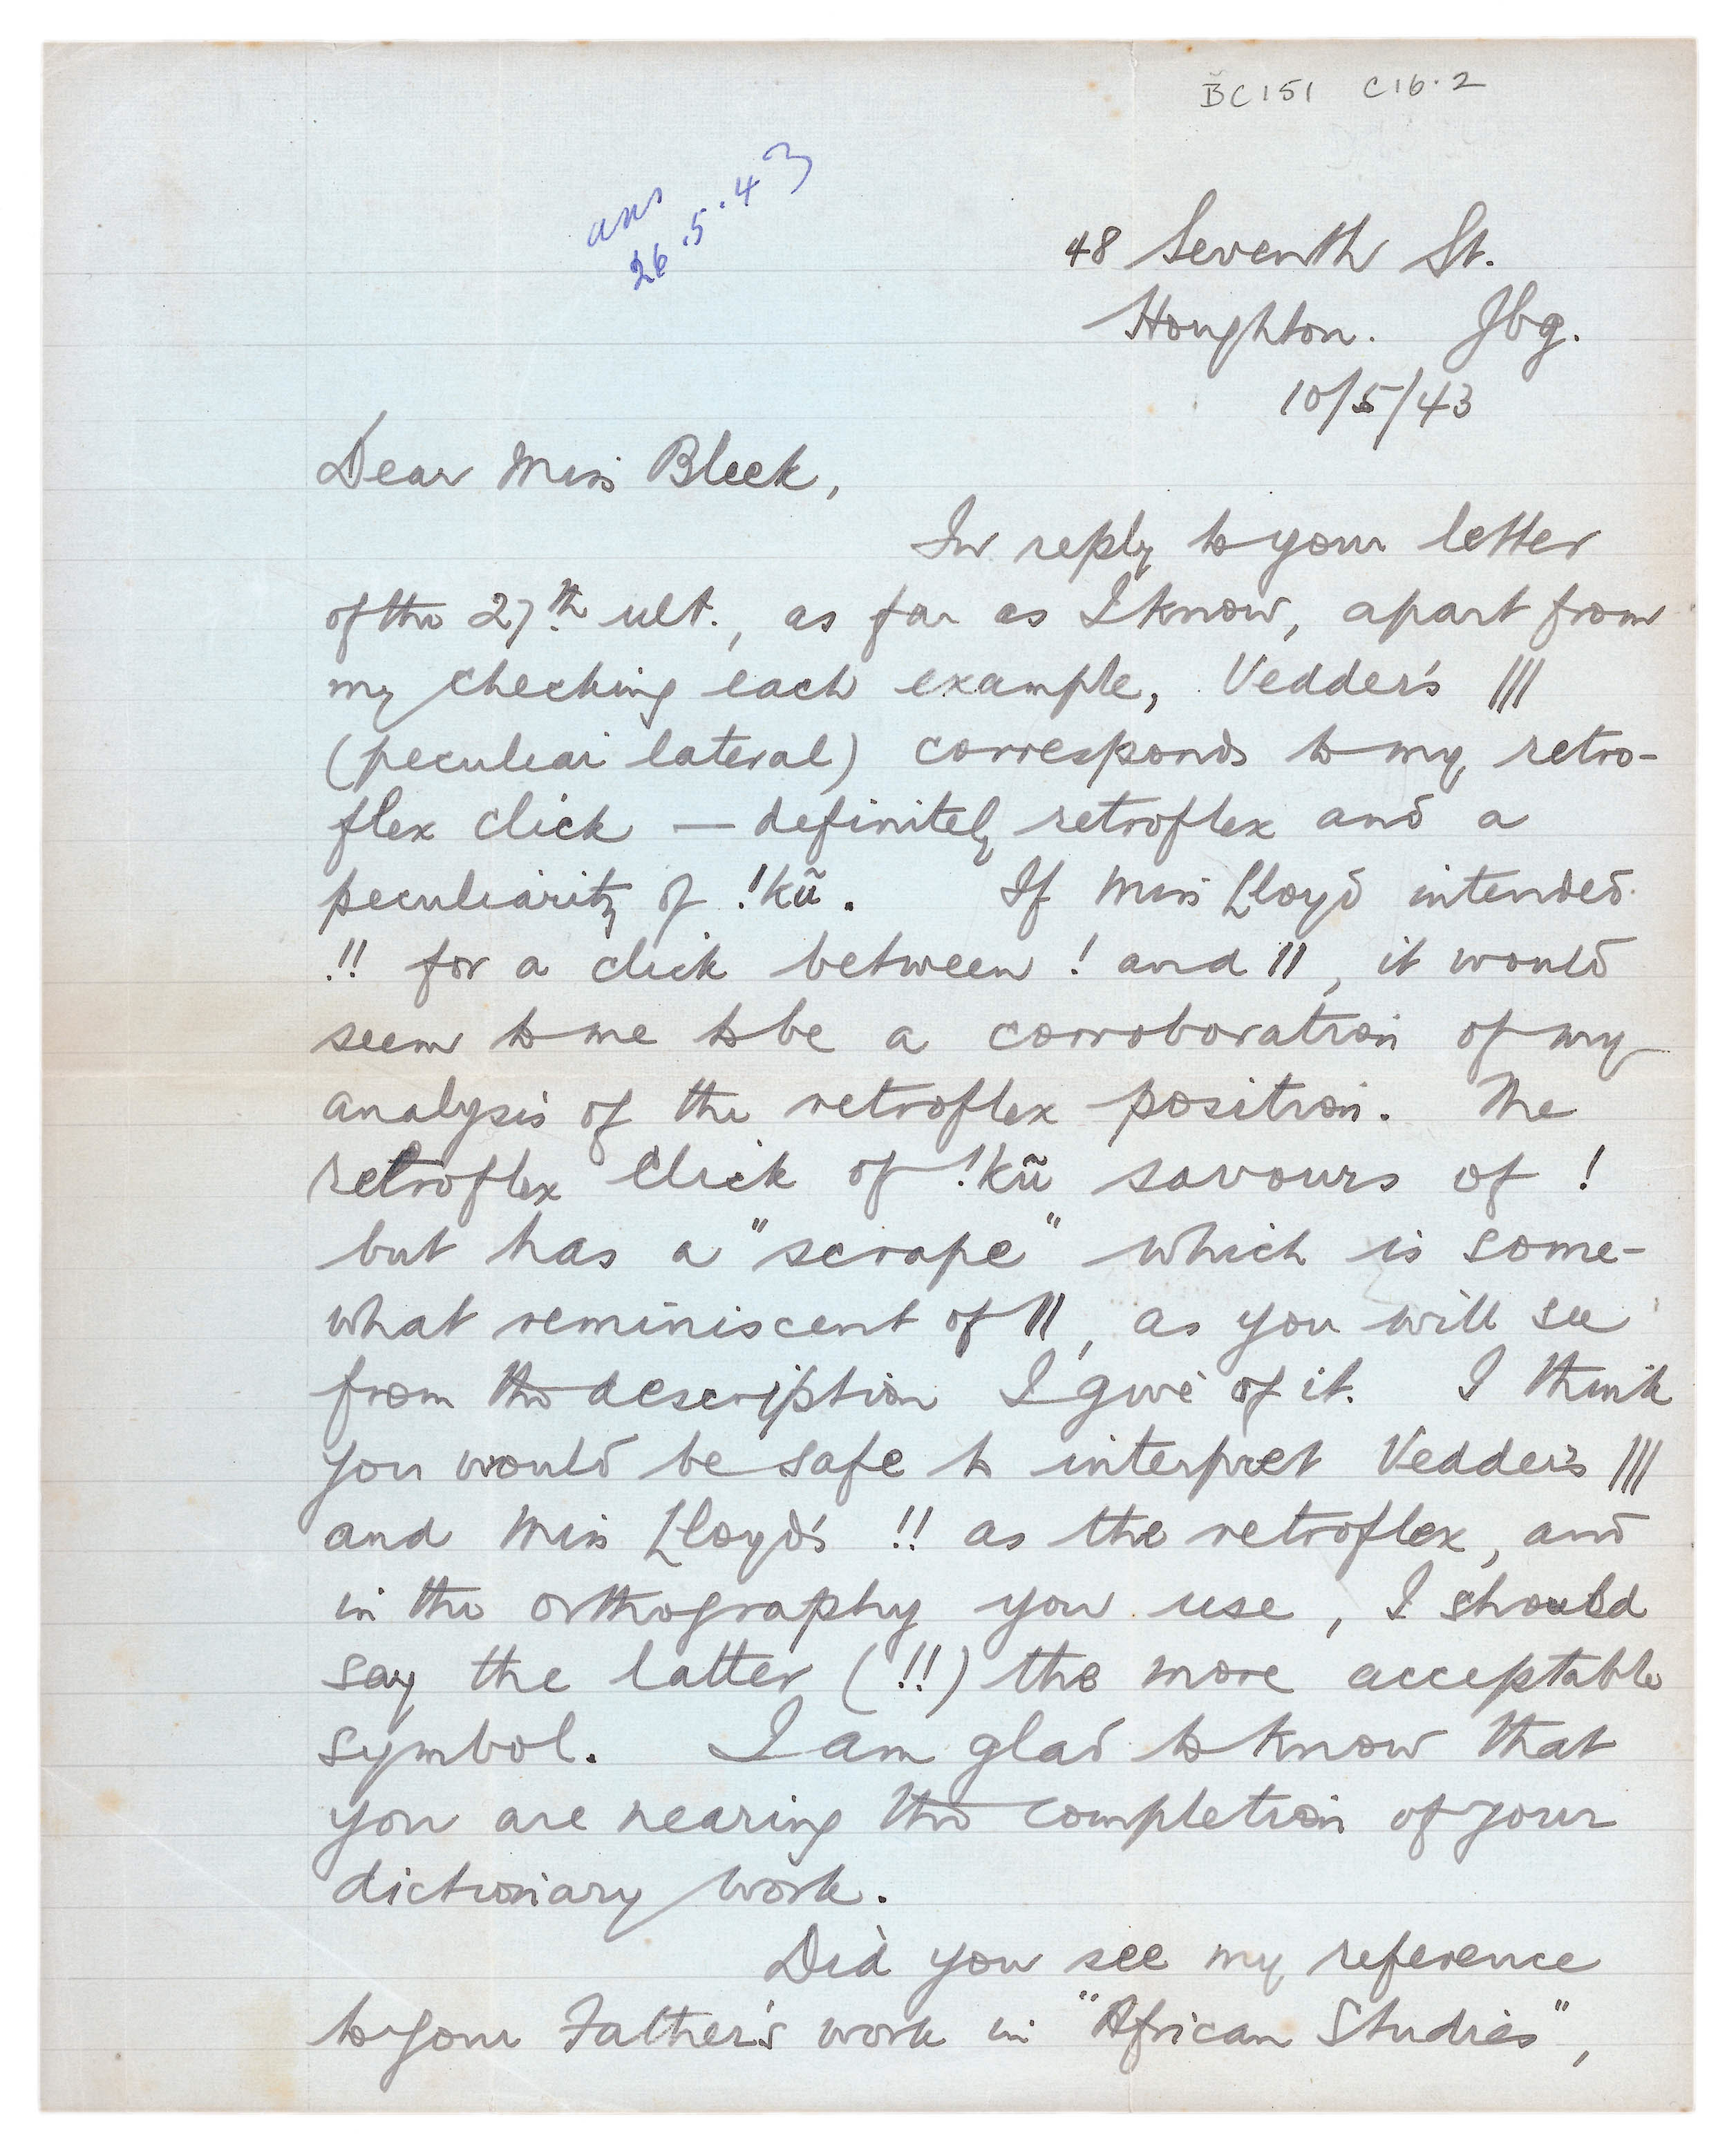 BC151 C16.2
ans
26.5.43
48 Seventh St.
Houghton. Jbg.
10/5/43
Dear Miss Bleek,
In reply to your letter
of the 27th ult., as far as I know, apart from
my checking each example, Vedder's |||
(peculiar lateral) corresponds to my retro-
flex click — definitely retroflex and a
peculiarity of !kũ. If Miss Lloyd intended
!! for a click between ! and ||, it would
seem to me to be a corroboration of my
analysis of the retroflex position. The
retroflex click of !kũ savours of !
but has a "scrape" which is some-
what reminiscent of ||, as you will see
from the description I give of it. I think
you would be safe to interpret Vedder's |||
and Miss Lloyd's !! as the retroflex, and
in the orthography you use, I should
say the latter (!!) the more acceptable
symbol. I am glad to know that
you are nearing the completion of your
dictionary work.
Did you see my reference
to your Father's work in "African Studies",